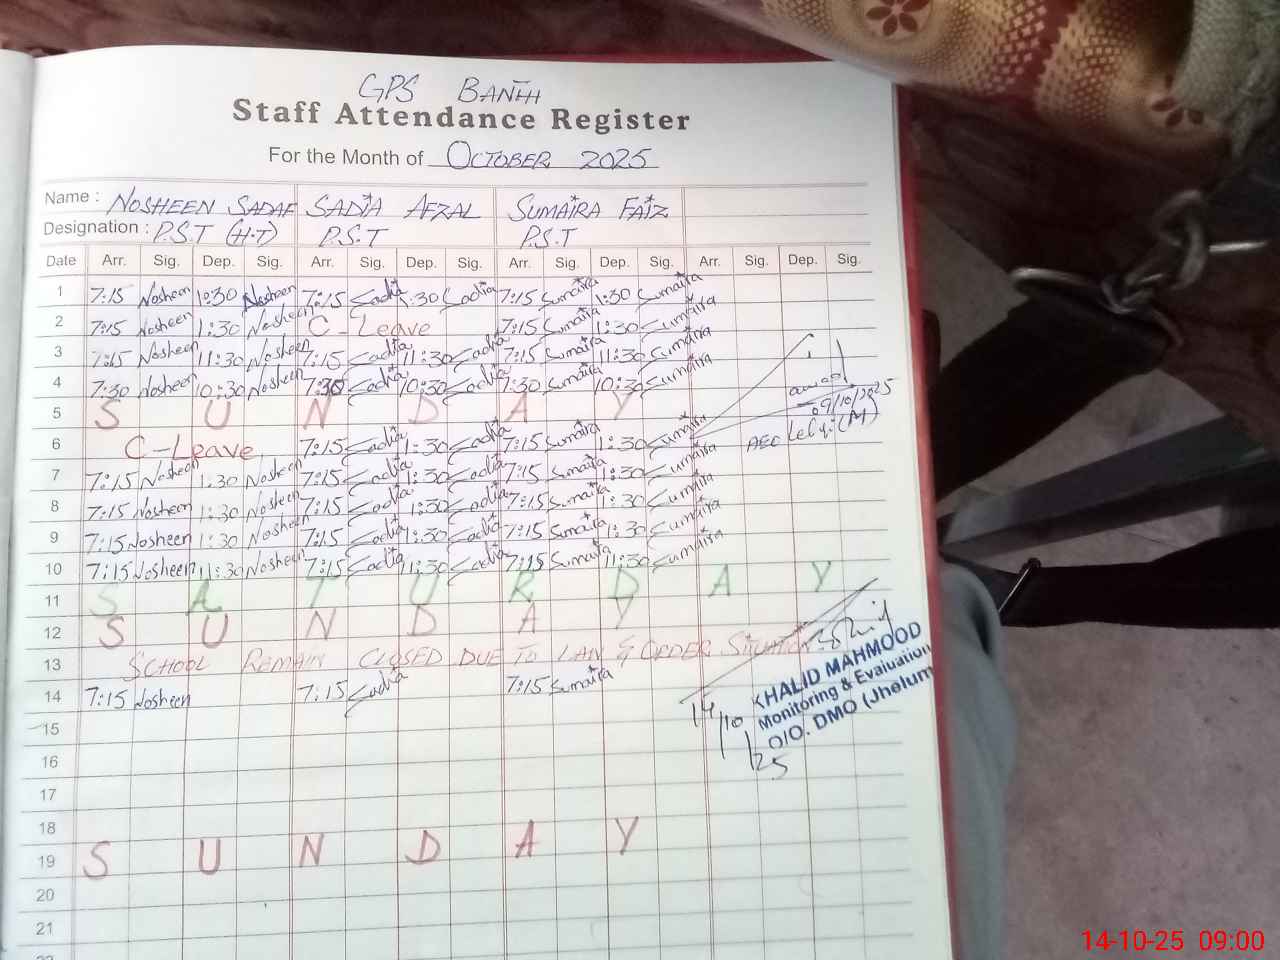 GPS BANTH
Staff Attendance Register
For the Month of OCTOBER 2025
Name : NOSHEEN SADAF SADIA AFZAL SUMAIRA FAIZ
Designation : P.S.T (H.T) P.S.T P.S.T
Date Arr. Sig. Dep. Sig. Arr. Sig. Dep. Sig. Arr. Sig. Dep. Sig. Arr. Sig. Dep. Sig.
1 7:15 Nosheen 1:30 Nosheen 7:15 Sadia 1:30 Sadia 7:15 Sumaira 1:30 Sumaira
2 7:15 Nosheen 1:30 Nosheen C-Leave 7:15 Sumaira 1:30 Sumaira
3 7:15 Nosheen 11:30 Nosheen 7:15 Sadia 11:30 Sadia 7:15 Sumaira 11:30 Sumaira
4 7:30 Nosheen 10:30 Nosheen 7:30 Sadia 10:30 Sadia 7:30 Sumaira 10:30 Sumaira
5 S U N D A Y
09/10/2025
AEO
6 C-Leave 7:15 Sadia 1:30 Sadia 7:15 Sumaira 1:30 Sumaira
7 7:15 Nosheen 1:30 Nosheen 7:15 Sadia 1:30 Sadia 7:15 Sumaira 1:30 Sumaira
8 7:15 Nosheen 1:30 Nosheen 7:15 Sadia 1:30 Sadia 7:15 Sumaira 1:30 Sumaira
9 7:15 Nosheen 1:30 Nosheen 7:15 Sadia 1:30 Sadia 7:15 Sumaira 1:30 Sumaira
10 7:15 Nosheen 11:30 Nosheen 7:15 Sadia 11:30 Sadia 7:15 Sumaira 11:30 Sumaira
11 S A T U R D A Y
12 S U N D A Y
13 SCHOOL REMAIN CLOSED DUE TO LAN & ORDER SITUATION
14 7:15 Nosheen 7:15 Sadia 7:15 Sumaira
14/10/25
KHALID MAHMOOD
Monitoring & Evaluation
O/O. DMO (Jhelum
15
16
17
18
19 S U N D A Y
20
21
14-10-25 09:00